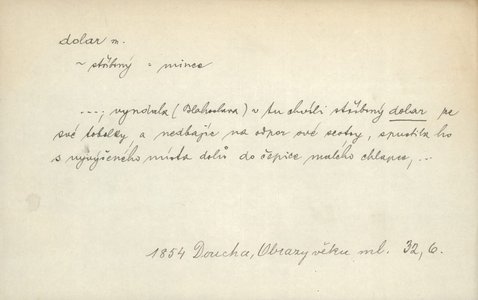 dolar m.
~ stříbrný = mince
...; vyndala (Blahoslava) v tu chvíli stříbrný dolar ze
své tobolky a nedbajíc na odpor své sestry, spustila ho
s vyvýšeného místa dolů do čepice malého chlapce, ...
1854 Doucha, Obrazy věku ml. 32, 6.